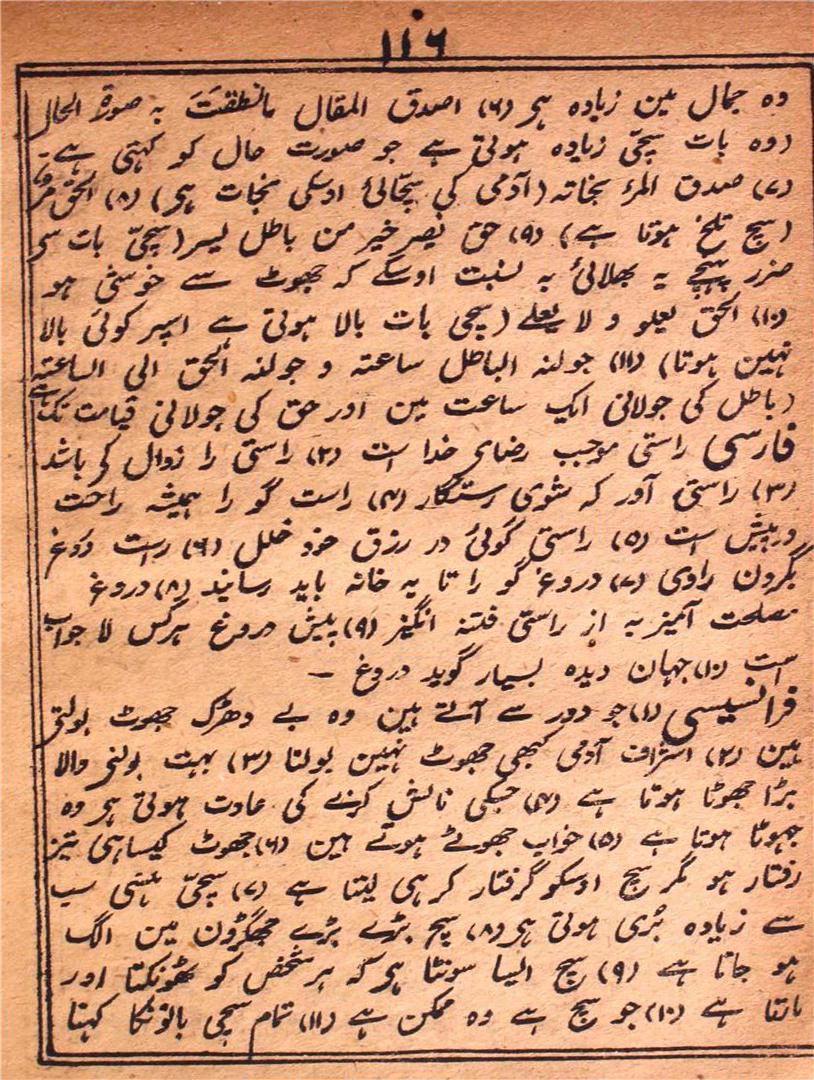 ۱۱۶
وہ جمال مین زیادہ ہی (۶) اصدق المقال مانطقت بہ صورۃ الحال
(وہ بات سچّی زیادہ ہوتی ہے جو صورت حال کو کہتی ہے۔
(۷) صدق المرء نجاتہ (آدمی کی سچّائی اوسکی نجات ہی) (۸) الحق مر
(سچ تلخ ہوتا ہے) (۹) حق یضر خیر من باطل یسر (سچّی بات سی
ضرر پہنچے یہ بھلائی بہ نسبت اوسکے کہ جھوٹ سے خوشی ہو
(۱۰) الحق یعلو و لا یعلے (سچی بات بالا ہوتی ہے اسپر کوئی بالا
نہین ہوتا) (۱۱) جولتہ الباطل ساعتہ و جولتہ الحق الی الساعتہ
(باطل کی جولانی ایک ساعت مین اور حق کی جولانی قیامت تک ہے
فارسی راستی موجب رضای خدا است (۲) راستی را زوال کی باشد
(۳) راستی آور کہ شوی رستگار (۴) راست گو را ہمیشہ راحت
درپیش است (۵) راستی گوئی در رزق خود خلل (۶) راست دروغ
بگردن راوی (۷) دروغ گو را تا بہ خانہ باید رسانید (۸) دروغ
مصلحت آمیز بہ از راستی فتنہ انگیز (۹) پیش دروغ ہرکس لا جواب
است (۱۰) جہان دیدہ بسیار گوید دروغ –
فرانسیسی (۱) جو دور سے آتے ہین وہ بے دھڑک جھوٹ بولتی
ہین (۲) اشراف آدمی کبھی جھوٹ نہین بولتا (۳) بہت بولنی والا
بڑا جھوٹا ہوتا ہے (۴) جسکی نالش کرنے کی عادت ہوتی ہی وہ
جہوٹا ہوتا ہے (۵) خواب جھوٹے ہوتے ہین (۶) جھوٹ کیسا ہی تیز
رفتار ہو مگر سچ اوسکو گرفتار کر ہی لیتا ہے (۷) سچّی ہنسی سب
سے زیادہ بُری ہوتی ہی (۸) سچ بڑے بڑے جھگڑون مین الگ
ہو جاتا ہے (۹) سچ ایسا سونٹا ہی کہ ہر شخص کو ٹھونکتا اور
ہے (۱۰) جو سچ ہے وہ ممکن ہے (۱۱) تمام سچی باتونکا کہنا